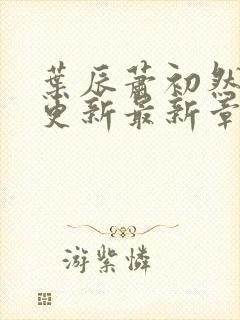 葉辰蕭初然
更新最新章
游紫憐